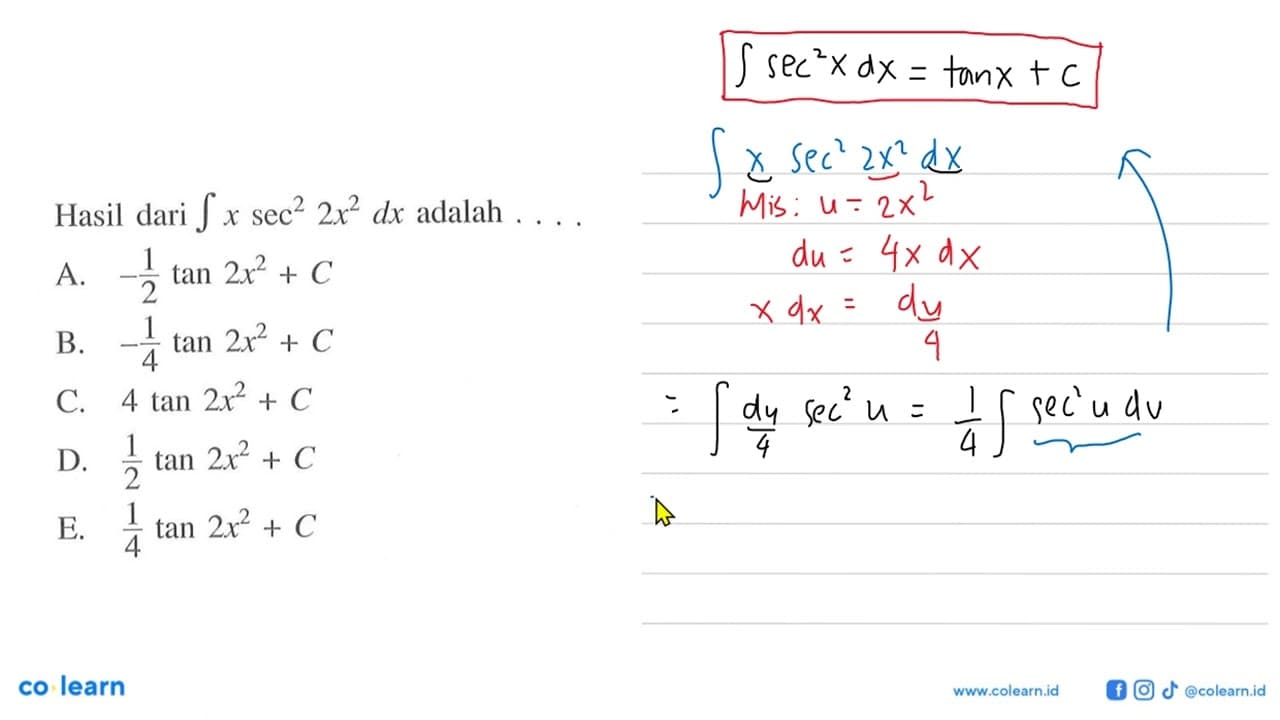 Hasil dari ∫ x sec² 2x² dx adalah . . . .
A. -1/2 tan 2x² + C
B. -1/4 tan 2x² + C
C. 4 tan 2x² + C
D. 1/2 tan 2x² + C
E. 1/4 tan 2x² + C
∫ sec²x dx = tanx + C
∫ x sec² 2x² dx
Mis: u = 2x²
du = 4x dx
x dx = du/4
= ∫ du/4 sec² u = 1/4 ∫ sec² u du
co learn
www.colearn.id
@colearn.id